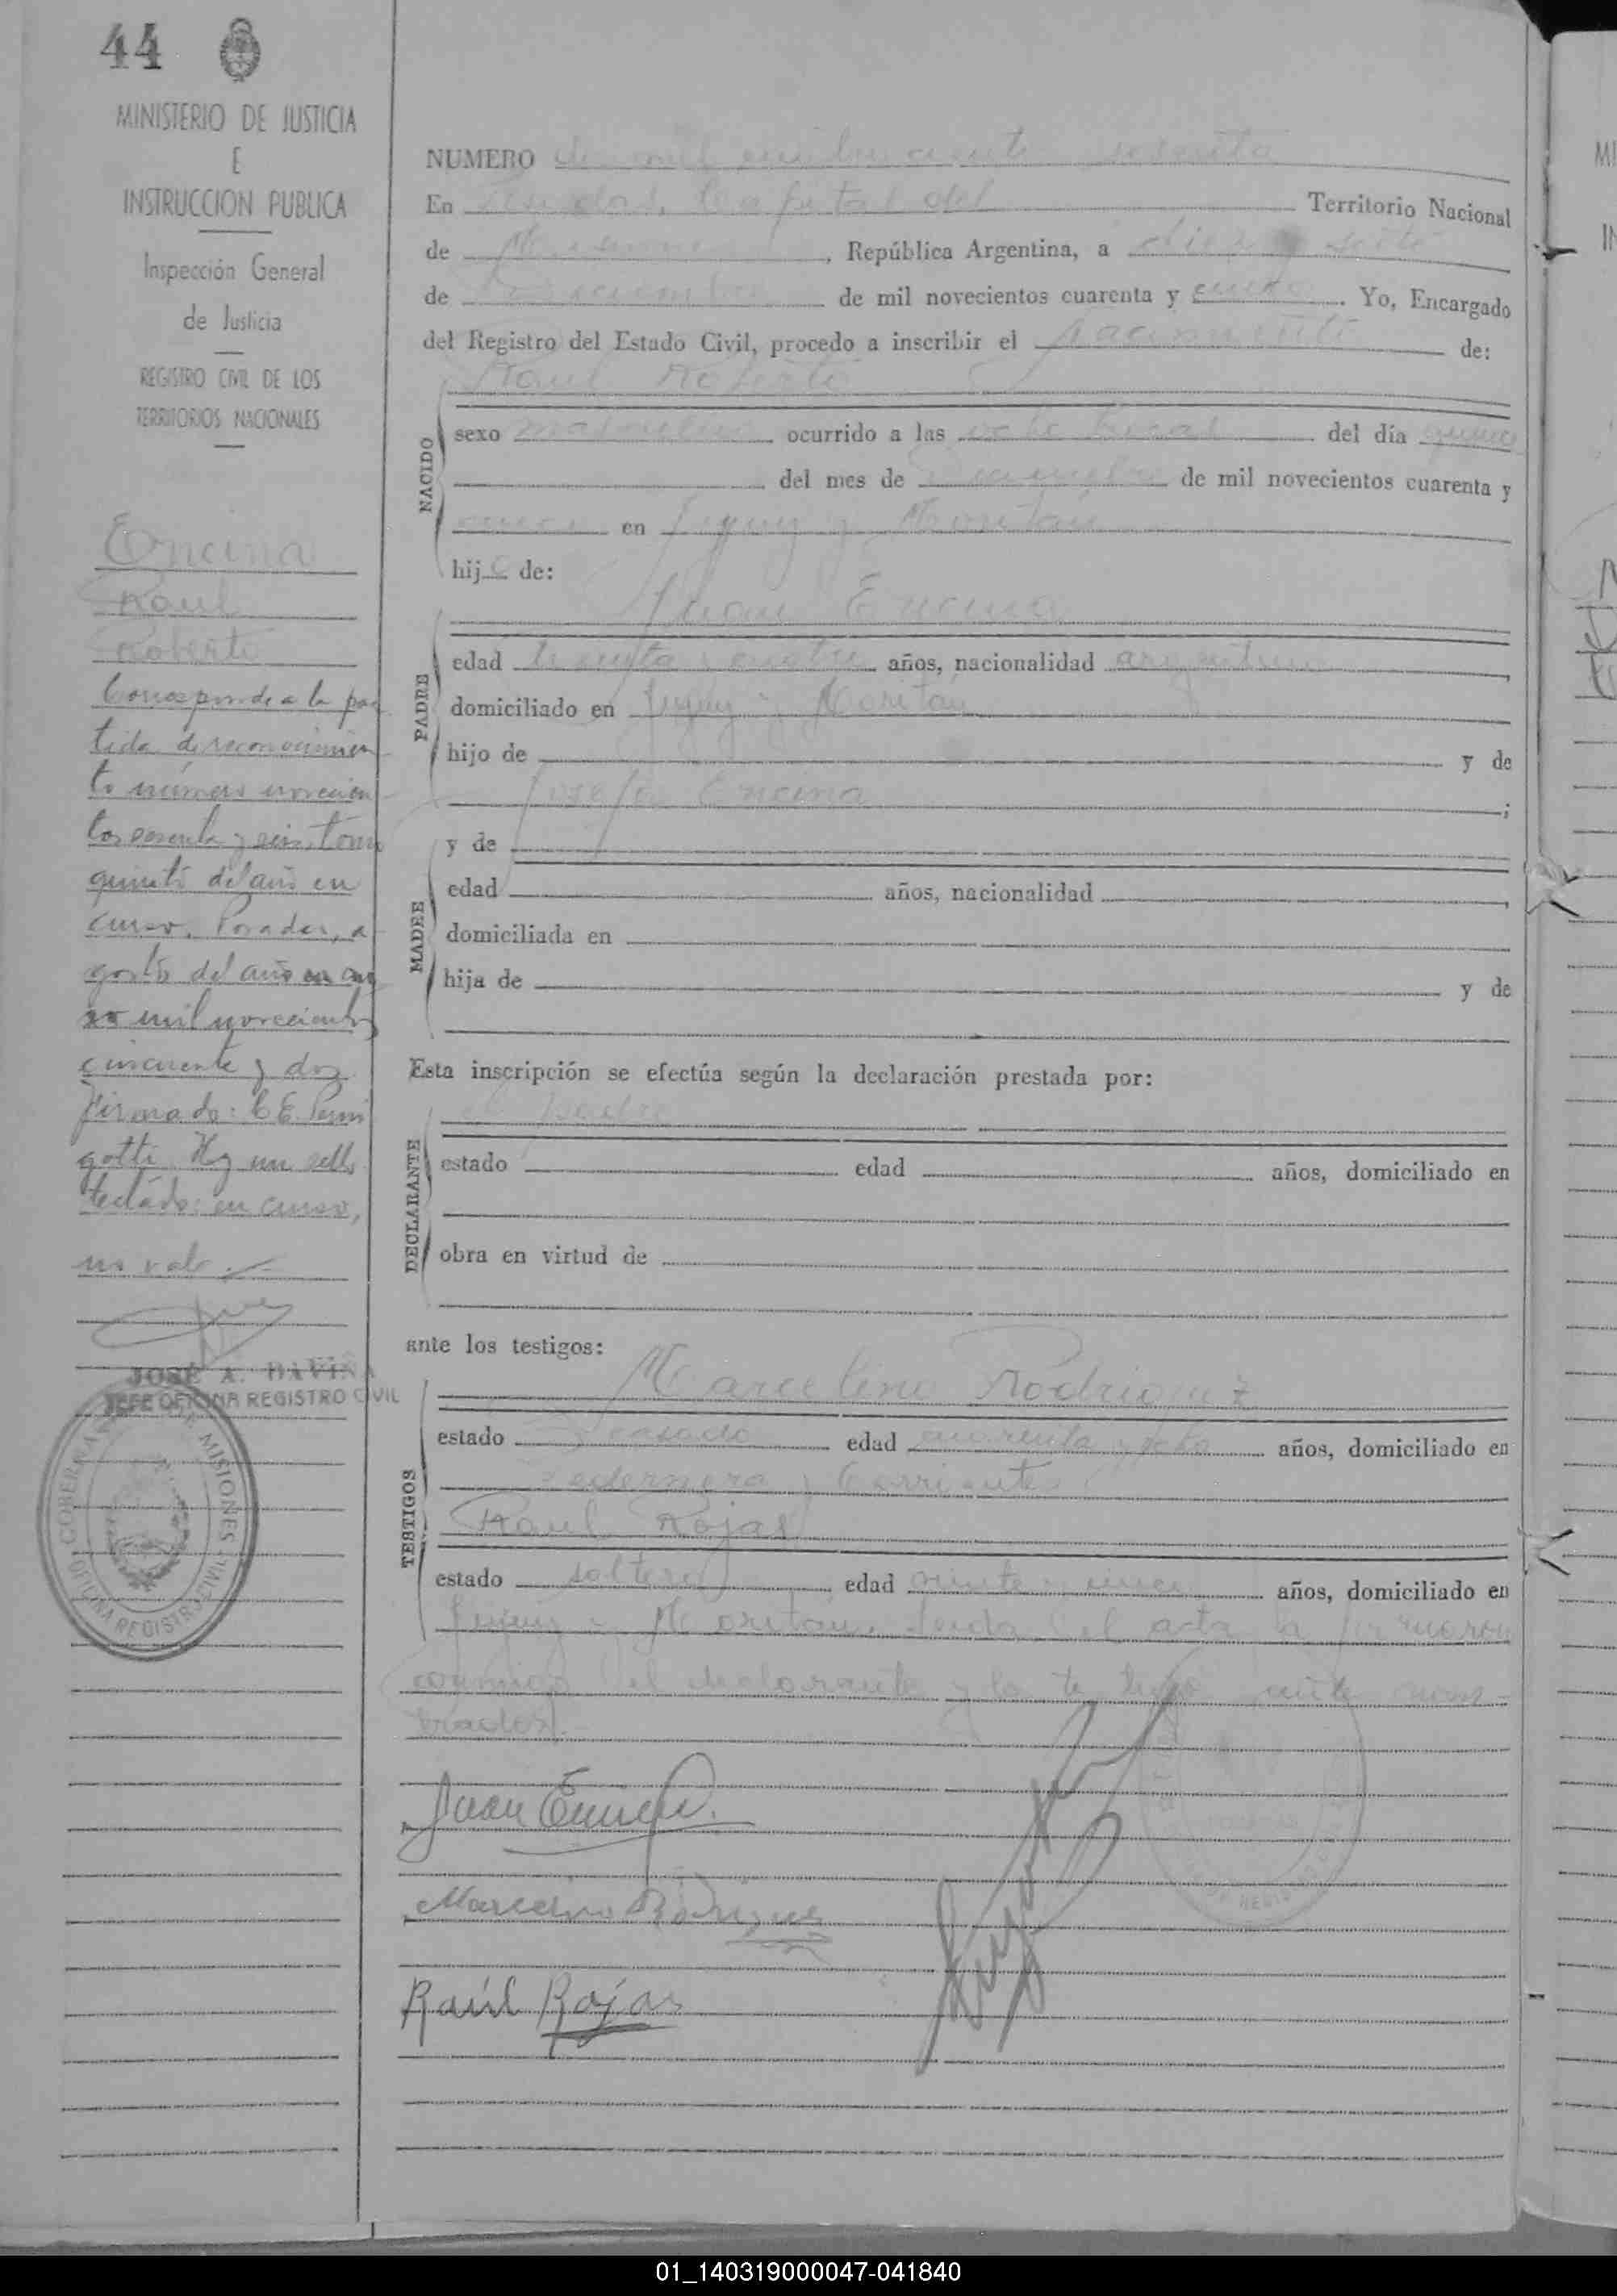 44
MINISTERIO DE JUSTICIA
E
INSTRUCCION PUBLICA
Inspección General
de Justicia
REGISTRO CIVIL DE LOS
TERRITORIOS NACIONALES
Encina
Raul
Roberto
Corresponde a la par
tida de reconocimien
to número novecien
tos sesenta y seis, tomo
quinto del año en
curso, Posadas, a
gosto del año en cur
so mil novecientos
cincuenta y dos
firmado: C. E.
gotti. Hay un sello
testado: en curso,
no vale.
JOSÉ A. DAVIÑA
JEFE OFICINA REGISTRO CIVIL
MISIONES
NUMERO mil cuatrocientos sesenta
En Posadas, Capital del Territorio Nacional
de Misiones, República Argentina, a diez y siete
de Diciembre de mil novecientos cuarenta y Yo, Encargado
del Registro del Estado Civil, procedo a inscribir el Nacimiento de:
Raul Roberto
NACIDO
sexo masculino ocurrido a las ocho horas del día quince
del mes de Diciembre de mil novecientos cuarenta y
en Jujuy y Moritán
hijo de:
Juan Encina
PADRE
edad treinta y años, nacionalidad argentino
domiciliado en Jujuy y Moritán
hijo de y de
Josefa Encina ;
y de
MADRE
edad años, nacionalidad
domiciliada en
hija de y de
Esta inscripción se efectúa según la declaración prestada por:
el padre
DECLARANTE
estado edad años, domiciliado en
obra en virtud de
ante los testigos:
Marcelino Rodriguez
TESTIGOS
estado casado edad cuarenta y ocho años, domiciliado en
Pedernera y Corrientes
Raul Rojas
estado soltero edad veinte y cinco años, domiciliado en
Jujuy y Moritán. Leida el acta la firmaron
conmigo el declarante y los testigos ante nom-
brados.
Juan Encina
Marcelino Rodriguez
Raúl Rojas
01_140319000047-041840